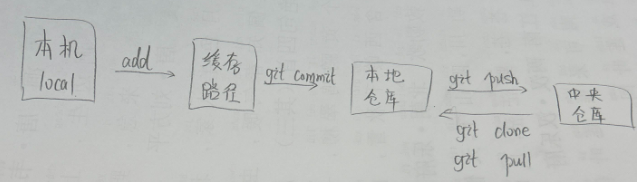 本机
local
add
缓存
路径
git commit
本地
仓库
git push
git clone
git pull
中央
仓库